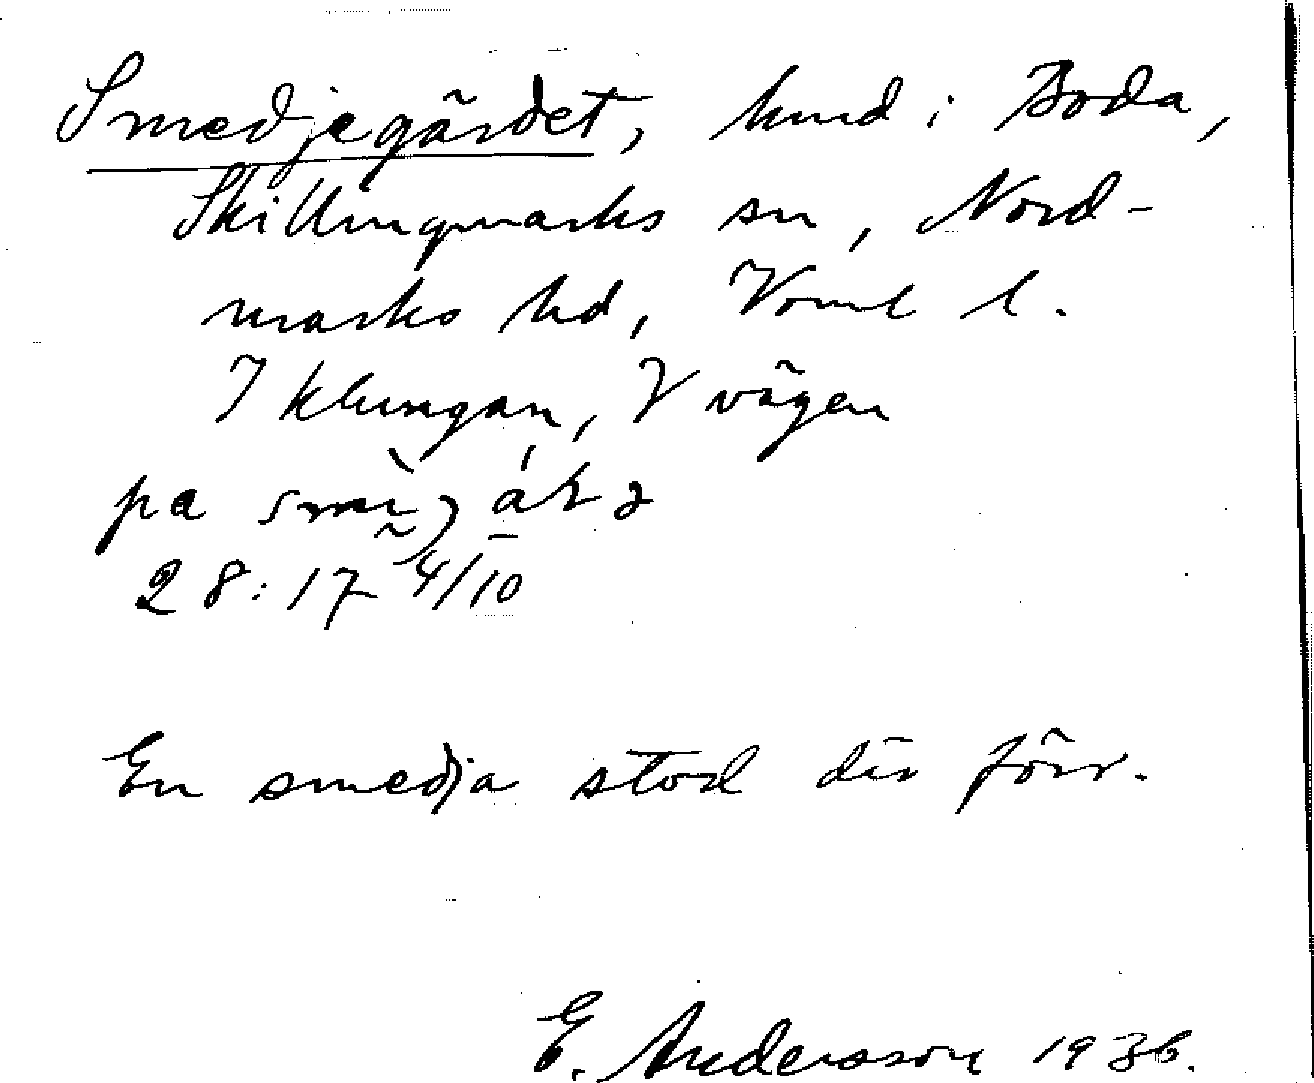 Smedjegärdet, hmd i Boda,
Skillingmarks sn, Nord-
marks hd, Värml l.
I klungan, V vägen
pa
28:17 4/10
En smedja stod där förr.
E. Andersson 1936.